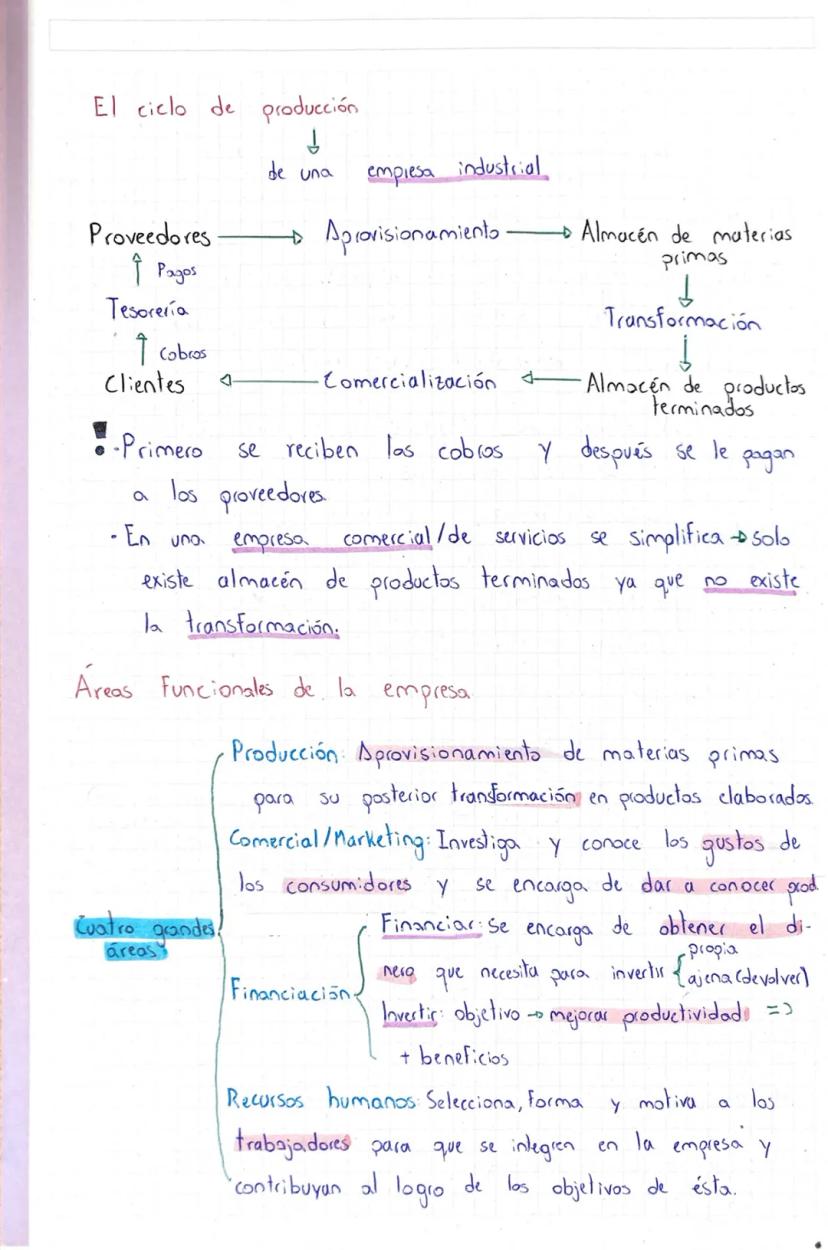 El ciclo de producción
de una empresa industrial
Proveedores → Aprovisionamiento → Almacén de materias
primas
↑ Pagos
↓
Tesorería
Transformación
↑ Cobros
↓
Clientes ← Comercialización ← Almacén de productos
terminados
! · Primero se reciben los cobros y después se le pagan
a los proveedores.
· En una empresa comercial/de servicios se simplifica → solo
existe almacén de productos terminados ya que no existe
la transformación.
Áreas Funcionales de la empresa
Producción: Aprovisionamiento de materias primas
para su posterior transformación en productos elaborados
Comercial/Marketing: Investiga y conoce los gustos de
los consumidores y se encarga de dar a conocer prod.
Cuatro grandes
áreas
Financiación
Financiar: Se encarga de obtener el di-
nero que necesita para invertir { propia
ajena (devolver)
Invertir: objetivo → mejorar productividad =>
+ beneficios
Recursos humanos: Selecciona, Forma y motiva a los
trabajadores para que se integren en la empresa y
contribuyan al logro de los objetivos de ésta.